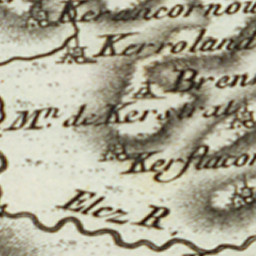 Kerancornou
Kerroland
Bren
Mn. de Kerstrat
Kerflacon
Elez R.